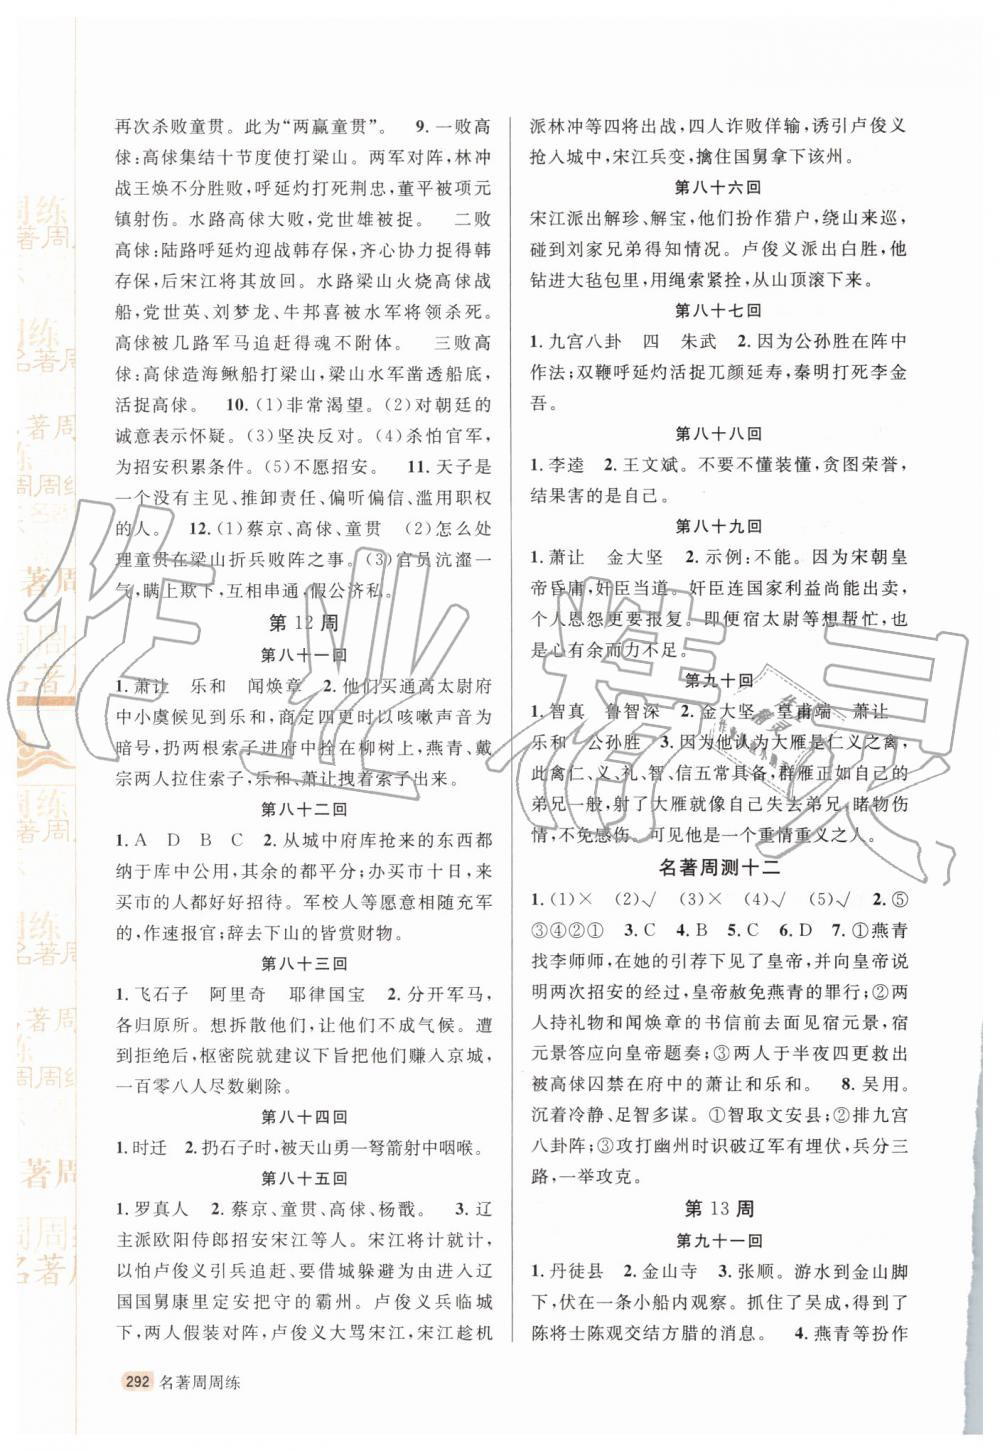 再次杀败童贯。此为“两赢童贯”。　9. 一败高
俅:高俅集结十节度使打梁山。两军对阵,林冲
战王焕不分胜败,呼延灼打死荆忠,董平被项元
镇射伤。水路高俅大败,党世雄被捉。　二败高
俅:陆路呼延灼迎战韩存保,齐心协力捉得韩
存保,后宋江将其放回。水路梁山火烧高俅战
船,党世英、刘梦龙、牛邦喜被水军将领杀死。
高俅被几路军马追赶得魂不附体。　三败高俅:
高俅造海鳅船打梁山,梁山水军凿透船底,
活捉高俅。　10. (1)非常渴望。(2)对朝廷的
诚意表示怀疑。(3)坚决反对。(4)杀怕官军,
为招安积累条件。(5)不愿招安。　11. 天子是
一个没有主见、推卸责任、偏听偏信、滥用职权
的人。　12. (1)蔡京、高俅、童贯　(2)怎么处
理童贯在梁山折兵败阵之事。(3)官员沆瀣一
气,瞒上欺下,互相串通,假公济私。
第 12 周
第八十一回
1. 萧让　乐和　闻焕章　2. 他们买通高太尉府
中小虞候见到乐和,商定四更时以咳嗽声音为
暗号,扔两根索子进府中拴在柳树上,燕青、戴
宗两人拉住索子,乐和、萧让拽着索子出来。
第八十二回
1. A　D　B　C　2. 从城中府库抢来的东西都
纳于库中公用,其余的都平分;办买市十日,来
买市的人都好好招待。军校人等愿意相随充军
的,作速报官;辞去下山的皆赏财物。
第八十三回
1. 飞石子　阿里奇　耶律国宝　2. 分开军马,
各归原所。想拆散他们,让他们不成气候。遭
到拒绝后,枢密院就建议下旨把他们赚入京城,
一百零八人尽数剿除。
第八十四回
1. 时迁　2. 扔石子时,被天山勇一弩箭射中咽喉。
第八十五回
1. 罗真人　2. 蔡京、童贯、高俅、杨戬。　3. 辽
主派欧阳侍郎招安宋江等人。宋江将计就计,
以怕卢俊义引兵追赶、要借城躲避为由进入辽
国国舅康里定安把守的霸州。卢俊义兵临城
下,两人假装对阵,卢俊义大骂宋江,宋江趁机
派林冲等四将出战,四人诈败佯输,诱引卢俊义
抢入城中,宋江兵变,擒住国舅拿下该州。
第八十六回
宋江派出解珍、解宝,他们扮作猎户,绕山来巡,
碰到刘家兄弟得知情况。卢俊义派出白胜,他
钻进大毡包里,用绳索紧拴,从山顶滚下来。
第八十七回
1. 九宫八卦　四　朱武　2. 因为公孙胜在阵中
作法;双鞭呼延灼活捉兀颜延寿,秦明打死李金
吾。
第八十八回
1. 李逵　2. 王文斌。不要不懂装懂,贪图荣誉,
结果害的是自己。
第八十九回
1. 萧让　金大坚　2. 示例:不能。因为宋朝皇
帝昏庸,奸臣当道。奸臣连国家利益尚能出卖,
个人恩怨更要报复。即便有宿太尉等想帮忙,也
是心有余而力不足。
第九十回
1. 智真　鲁智深　2. 金大坚　皇甫端　萧让
乐和　公孙胜　3. 因为他认为大雁是仁义之禽,
此禽仁、义、礼、智、信五常具备,群雁正如自己的
弟兄一般,射了大雁就像自己失去弟兄,睹物伤
情,不免感伤。可见他是一个重情重义之人。
名著周测十二
1. (1)×　(2)√　(3)×　(4)√　(5)√　2. ⑤
③④②①　3. C　4. B　5. C　6. D　7. ①燕青
找李师师,在她的引荐下见了皇帝,并向皇帝说
明两次招安的经过,皇帝赦免燕青的罪行;②两
人持礼物和闻焕章的书信前去面见宿元景,宿
元景答应向皇帝题奏;③两人于半夜四更救出
被高俅囚禁在府中的萧让和乐和。　8. 吴用。
沉着冷静、足智多谋。①智取文安县;②排九宫
八卦阵;③攻打幽州时识破辽军有埋伏,兵分三
路,一举攻克。
第 13 周
第九十一回
1. 丹徒县　2. 金山寺　3. 张顺。游水到金山脚
下,伏在一条小船内观察。抓住了吴成,得到了
陈将士陈观交结方腊的消息。　4. 燕青等扮作
292　名著周周练